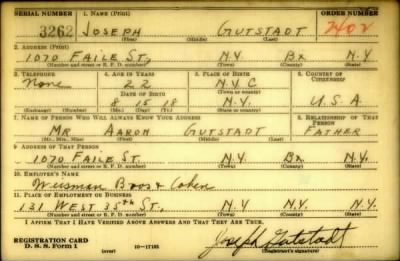 SERIAL NUMBER 1. NAME (Print) ORDER NUMBER
3262 JOSEPH GUTSTADT 7402
(First) (Middle) (Last)
2. ADDRESS (Print)
1070 FAILE ST., N.Y. Bx N.Y.
(Number and street or R. F. D. number) (Town) (County) (State)
3. TELEPHONE 4. AGE IN YEARS 5. PLACE OF BIRTH 6. COUNTRY OF CITIZENSHIP
None 22 N.Y.C
DATE OF BIRTH (Town or county)
8 15 18 N.Y. U.S.A
(Exchange) (Number) (Mo.) (Day) (Yr.) (State or country)
7. NAME OF PERSON WHO WILL ALWAYS KNOW YOUR ADDRESS 8. RELATIONSHIP OF THAT PERSON
MR AARON GUTSTADT FATHER
(Mr., Mrs., Miss) (First) (Middle) (Last)
9. ADDRESS OF THAT PERSON
1070 FAILE ST. N.Y. Bx. N.Y.
(Number and street or R. F. D. number) (Town) (County) (State)
10. EMPLOYER'S NAME
Bros & Cohen
11. PLACE OF EMPLOYMENT OR BUSINESS
131 WEST 35th ST., N.Y. N.Y. N.Y.
(Number and street or R. F. D. number) (Town) (County) (State)
I AFFIRM THAT I HAVE VERIFIED ABOVE ANSWERS AND THAT THEY ARE TRUE.
REGISTRATION CARD
D. S. S. Form 1 (over) 16—17105 Joseph Gutstadt
(Registrant's signature)